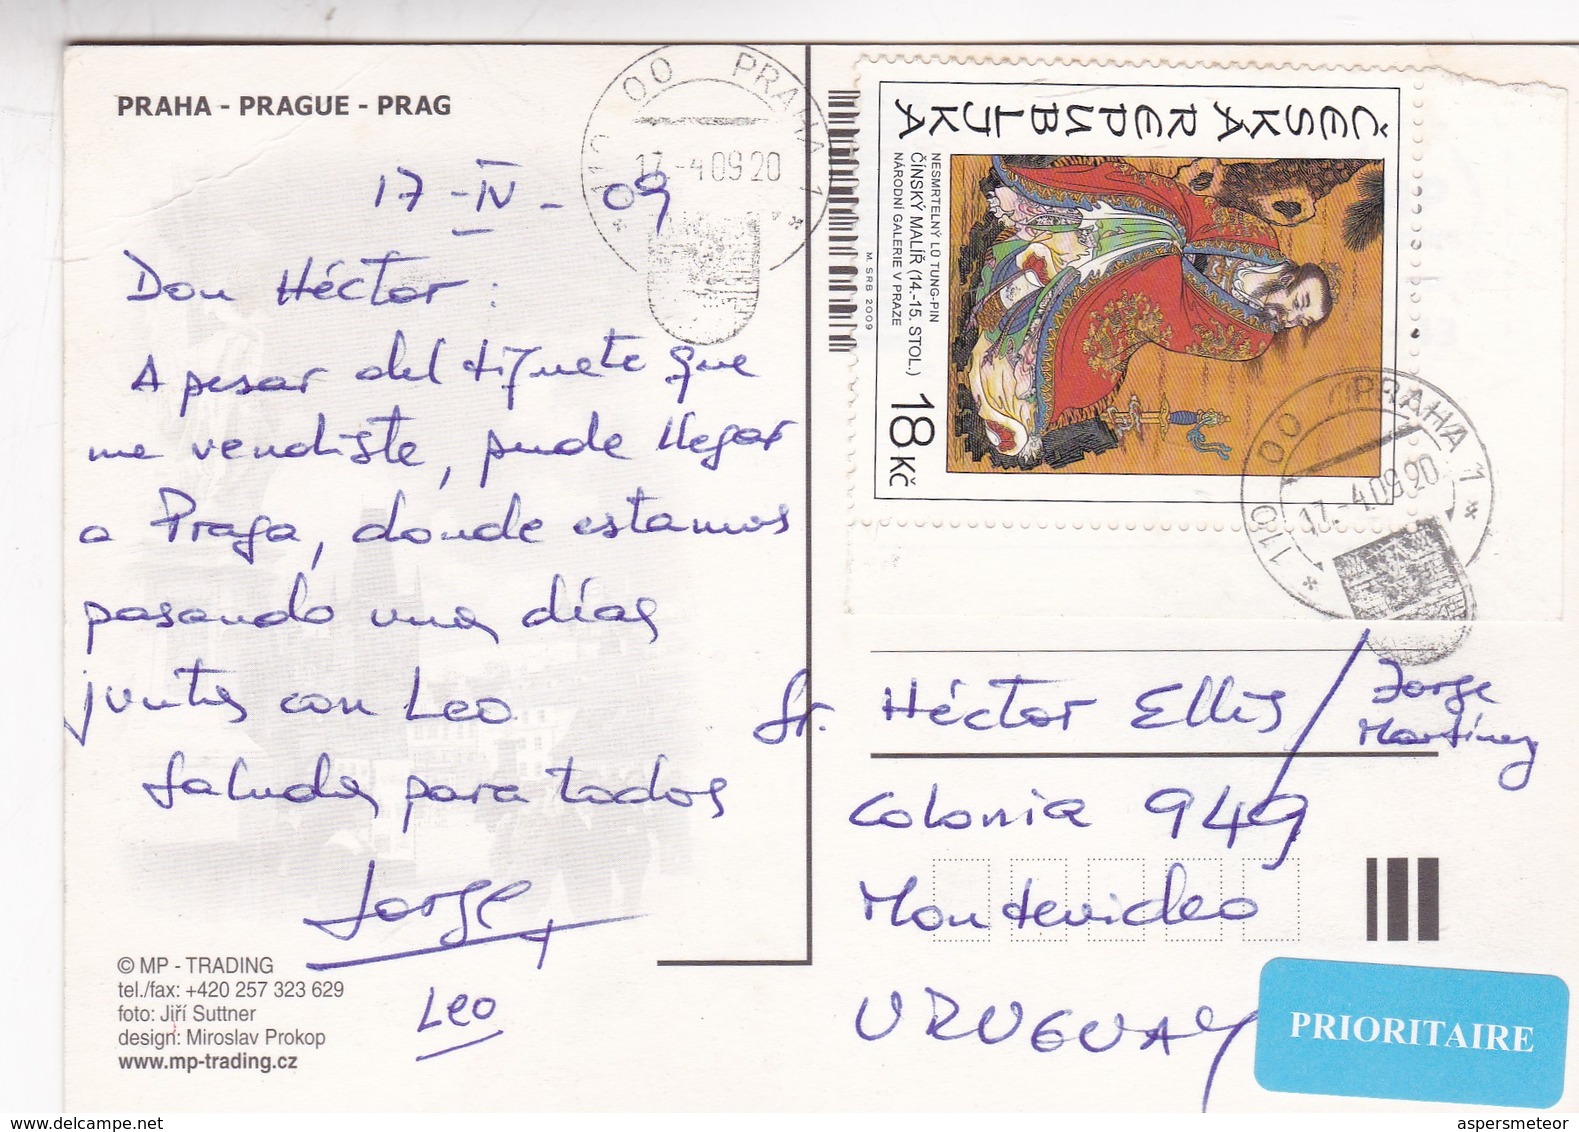 PRAHA - PRAGUE - PRAG
17 - IV - 09
Don Héctor :
A pesar del tiquete que
me vendiste, pude llegar
a Praga, donde estamos
pasando unos días
juntos con Leo
Saludos para todos
Jorge
Leo
© MP - TRADING
tel./fax: +420 257 323 629
foto: Jiří Suttner
design: Miroslav Prokop
www.mp-trading.cz
110 00 PRAHA 1
17.-4.09 20
ČESKÁ REPUBLIKA
NESMRTELNÝ LÜ TUNG-PIN
ČÍNSKÝ MALÍŘ (14.-15. STOL.)
NÁRODNÍ GALERIE V PRAZE
18 Kč
M. SRB 2009
110 00 PRAHA 1
17.-4.09 20
Sr. Héctor Ellis / Jorge
Martínez
Colonia 949
Montevideo
URUGUAY
PRIORITAIRE
aspersmeteor